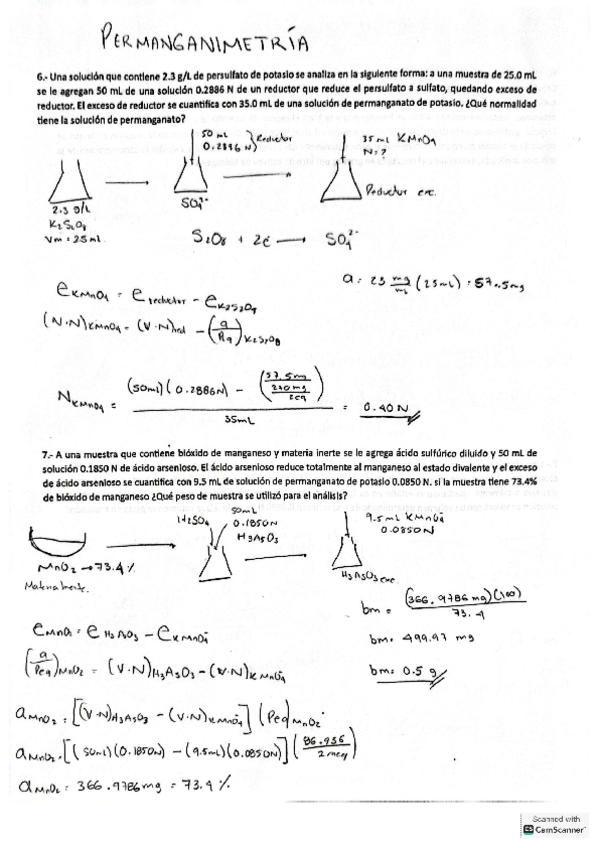 PERMANGANIMETRÍA
6.- Una solución que contiene 2.3 g/L de persulfato de potasio se analiza en la siguiente forma: a una muestra de 25.0 mL
se le agregan 50 mL de una solución 0.2886 N de un reductor que reduce el persulfato a sulfato, quedando exceso de
reductor. El exceso de reductor se cuantifica con 35.0 mL de una solución de permanganato de potasio. ¿Qué normalidad
tiene la solución de permanganato?
50 mL
0.2886 N
Reductor
35 ml KMnO4
N = ?
2.3 g/L
K2S2O8
Vm = 25 ml
SO4²⁻
Reductor exc.
S2O8 + 2é → SO4²⁻
a = 2.3 mg/mL (25mL) = 57.5 mg
e KMnO4 = e reductor - e K2S2O8
(V·N)KMnO4 = (V·N)red - (a/Peq)K2S2O8
N KMnO4 = (50ml)(0.2886N) - (57.5mg / (270mg/2eq)) / 35mL = 0.40 N
7.- A una muestra que contiene bióxido de manganeso y materia inerte se le agrega ácido sulfúrico diluido y 50 mL de
solución 0.1850 N de ácido arsenioso. El ácido arsenioso reduce totalmente al manganeso al estado divalente y el exceso
de ácido arsenioso se cuantifica con 9.5 mL de solución de permanganato de potasio 0.0850 N. si la muestra tiene 73.4%
de bióxido de manganeso ¿Qué peso de muestra se utilizó para el análisis?
H2SO4
50mL
0.1850N
H3AsO3
9.5 mL KMnO4
0.0850N
MnO2 → 73.4 %
Materia Inerte.
H3AsO3 exc
e MnO2 = e H3AsO3 - e KMnO4
(a/Peq)MnO2 = (V·N)H3AsO3 - (V·N)KMnO4
a MnO2 = [(V·N)H3AsO3 - (V·N)KMnO4] (Peq)MnO2
a MnO2 = [(50ml)(0.1850N) - (9.5ml)(0.0850N)] (86.936 / 2 meq)
a MnO2 = 366.9786 mg = 73.4 %
bm = (366.9786 mg)(100) / 73.4
bm = 499.97 mg
bm = 0.5 g
Scanned with
CS CamScanner